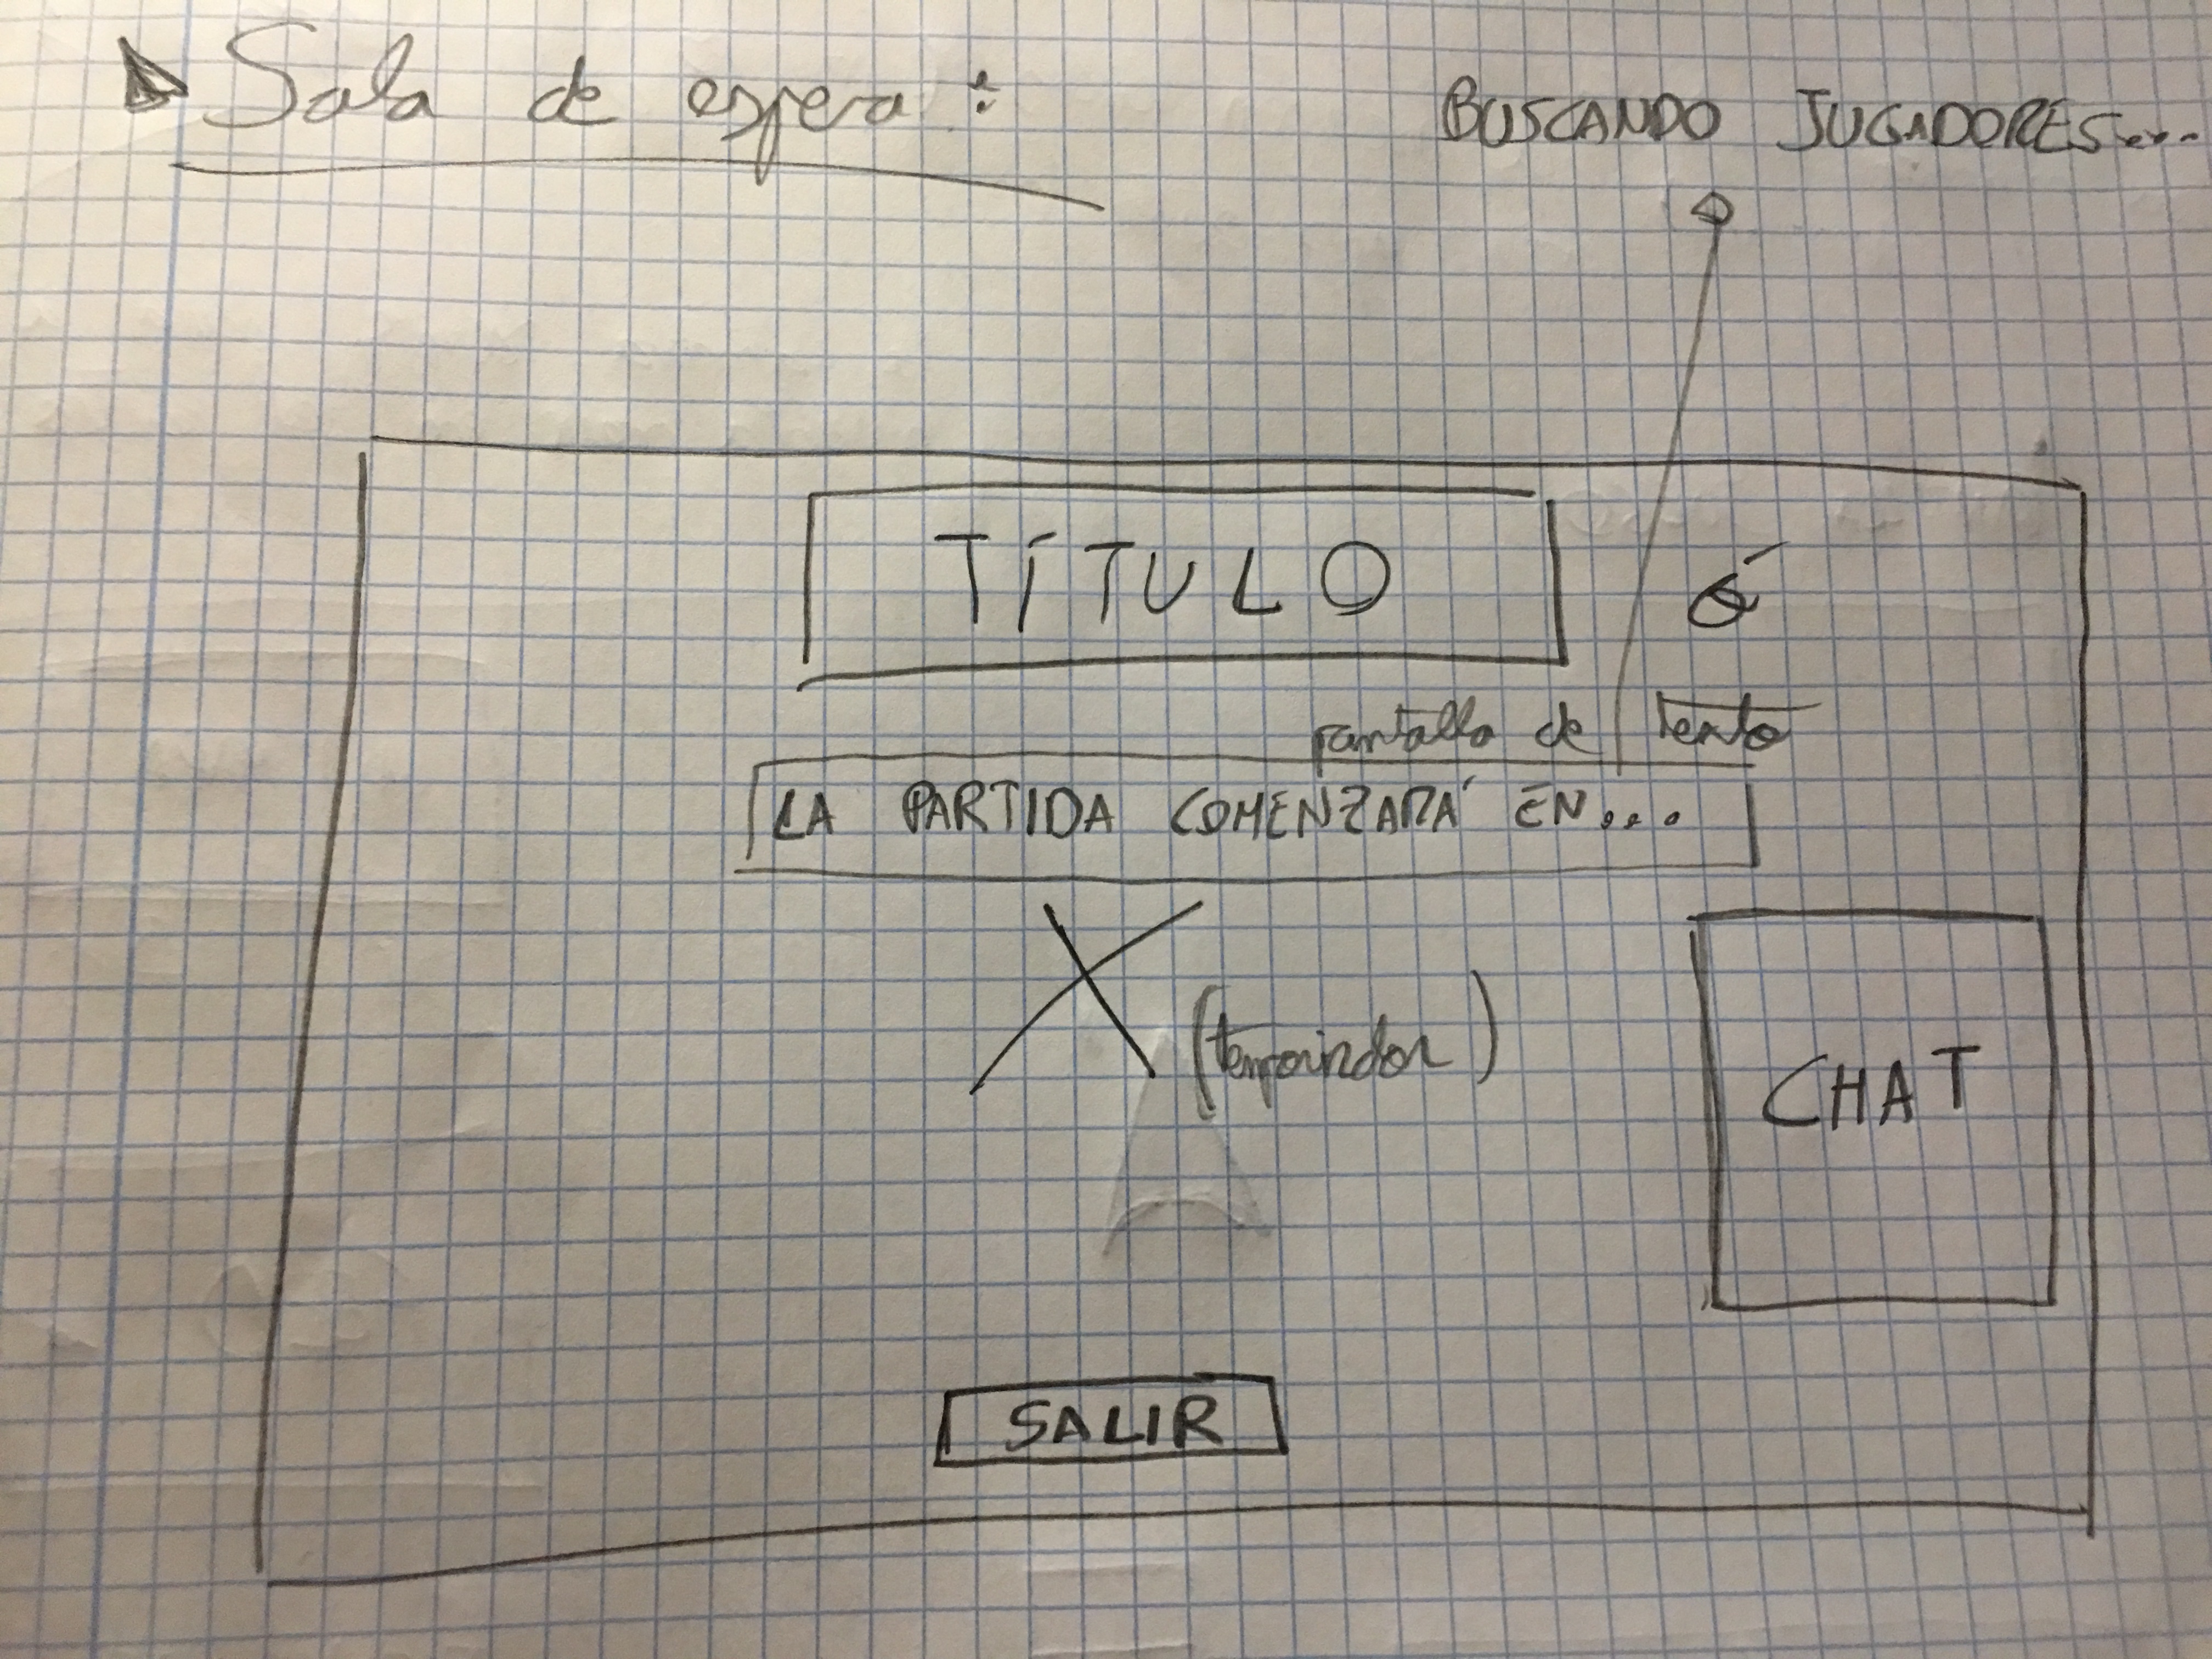 Sala de espera :
BUSCANDO JUGADORES...
TÍTULO
Ó
pantalla de texto
LA PARTIDA COMENZARÁ EN...
X
(temporizador)
CHAT
SALIR